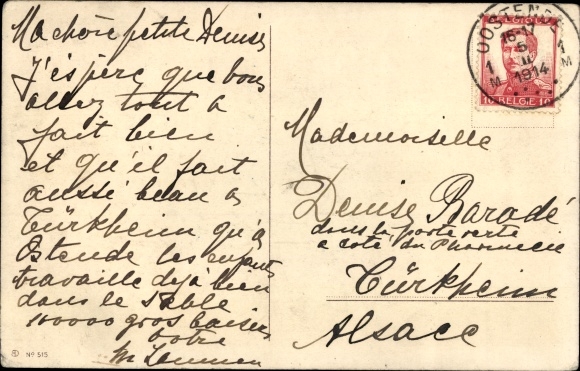 Ma chère petite Denise,
J'éspère que vous
allez tout à
fait bien
et qu'il fait
aussé beau à
Türkheim qu'à
Ostende les enfants
travaille déjà bien
dans le Sable
100000 gros baisers
votre
M
Nº 515
OOSTENDE
16-17
5
II
1914
1
M
1
M
BELGIË
10 BELGIE 10
Mademoiselle
Denise Baradé
dans la porte verte
a coté du Pharmacie
Türkheim
Alsace